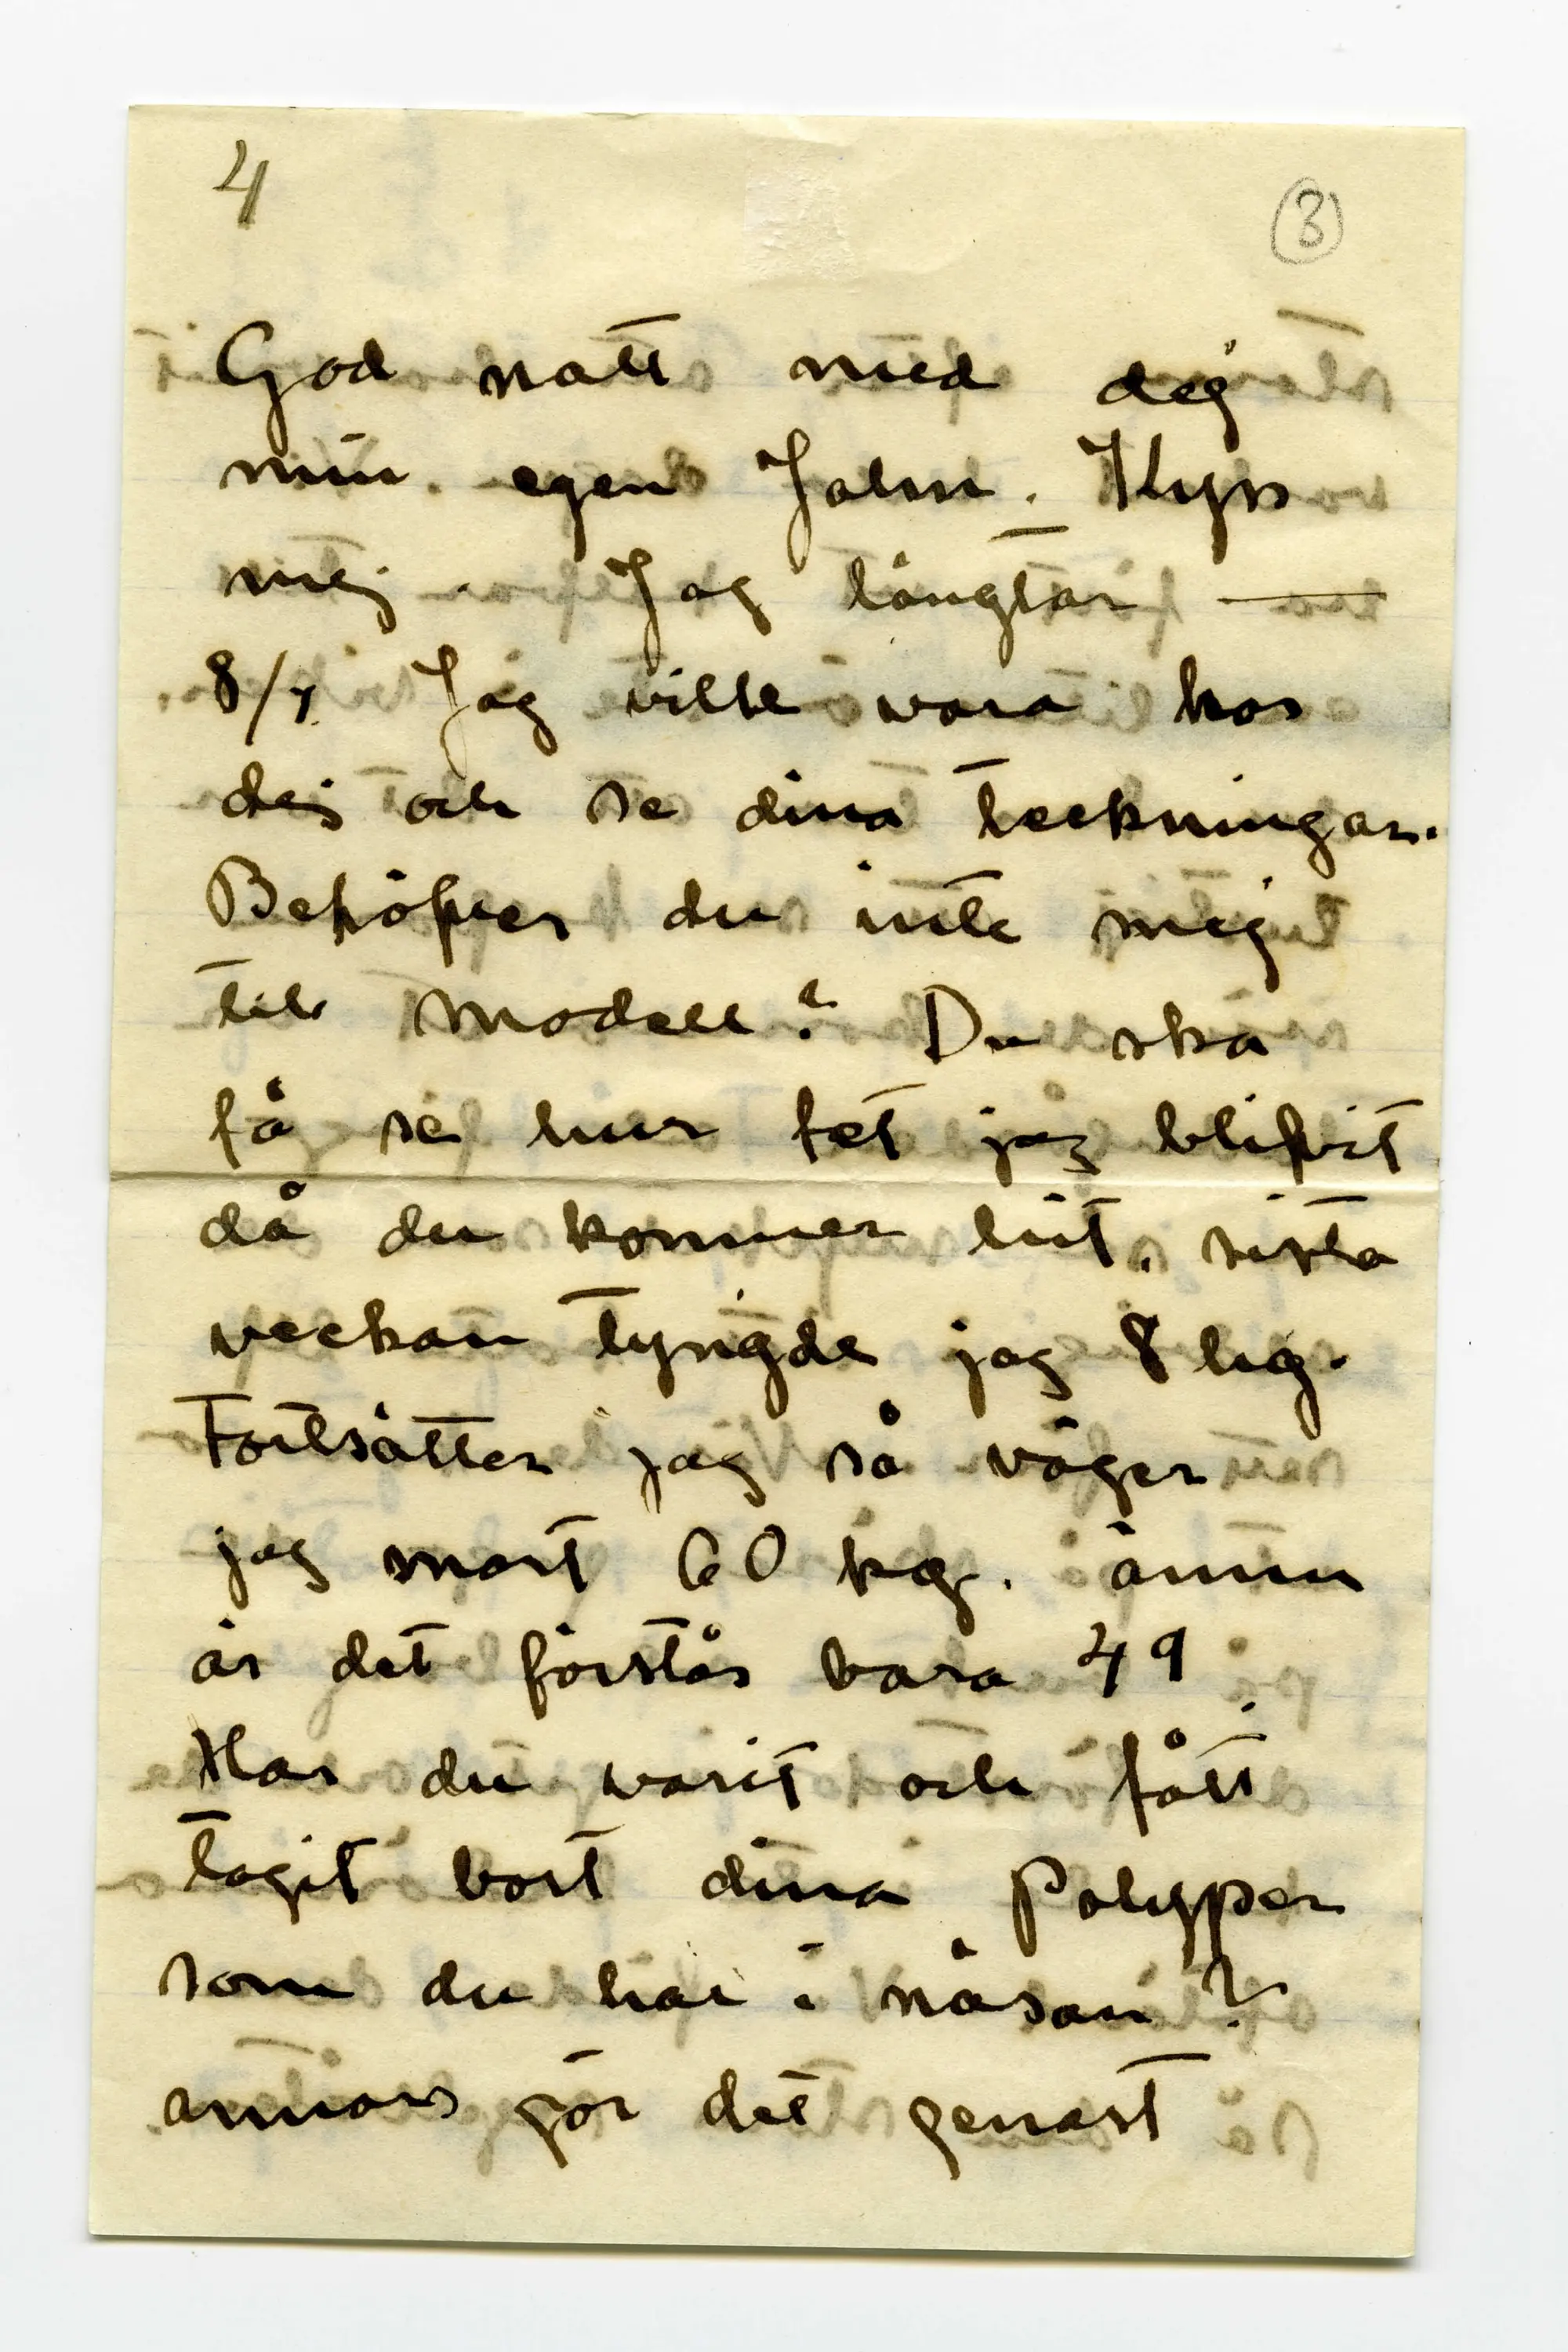 4
3
God natt med dej
min egen John. Kyss
mej. Jag längtar —
8/7. Jag ville vara hos
dej och se dina teckningar.
Behöfver du inte mej
till modell? Du ska
få se hur fet jag blifvit
då du kommer hit. sista
veckan tyngde jag 8 hg.
Fortsätter jag så väger
jag snart 60 kg. ännu
är det förstås bara 49
Har du varit och fått
tagit bort dina polyper
som du har i näsan?
annars gör det genast